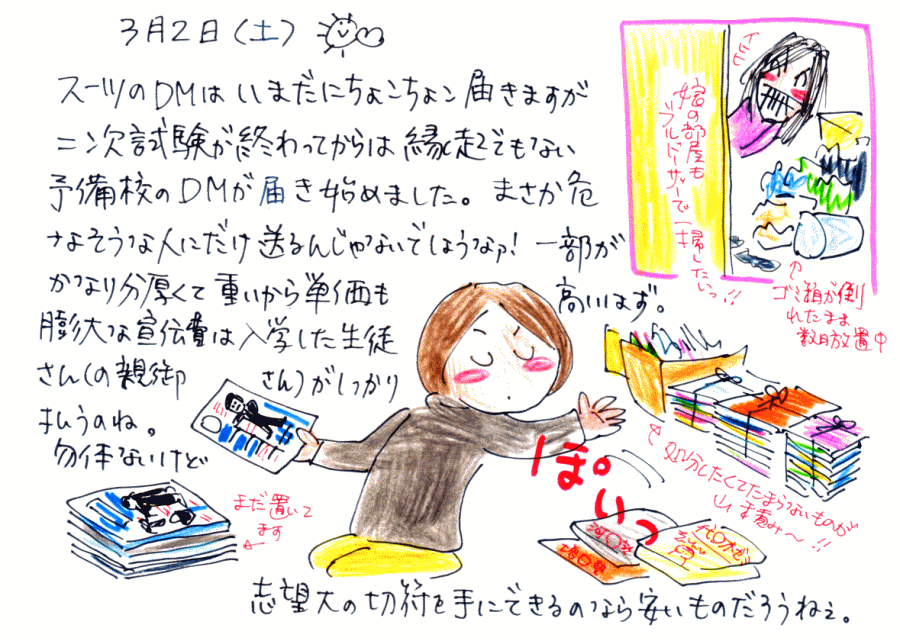 3月2日(土)
スーツのDMはいまだにちょこちょこ届きますが
二次試験が終わってからは縁起でもない
予備校のDMが届き始めました。まさか危
なそうな人にだけ送るんじゃないでしょうなァ!一部が
かなり分厚くて重いから単価も
高いはず。
膨大な宣伝費は入学した生徒
さん(の親御
さん)がしっかり
払うのね。
勿体ないけど
まだ置いて
ます
ぽいっ
志望大の切符を手にできるのなら安いものだろうねぇ。
イヒヒ
娘の部屋も
ブルドーザーで
一掃したいっ!!
ゴミ箱が倒
れたまま
数日放置中
処分したくてたまらないものが
山積み〜!!